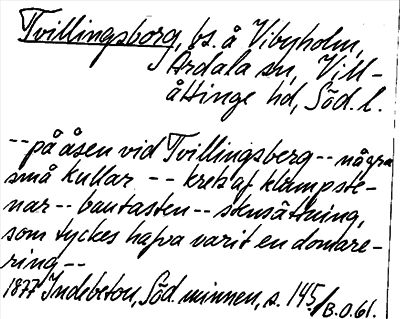 Tvillingsborg, bs. å Vibyholm,
Årdala sn, Vill-
åttinge hd, Söd. l.
-- på åsen vid Tvillingsberg -- några
små kullar -- krets af klumpste-
nar -- bautasten -- stensättning,
som tyckes hafva varit en domare-
ring --
1877 Indebetou, Söd. minnen, s. 145/B.O.61.